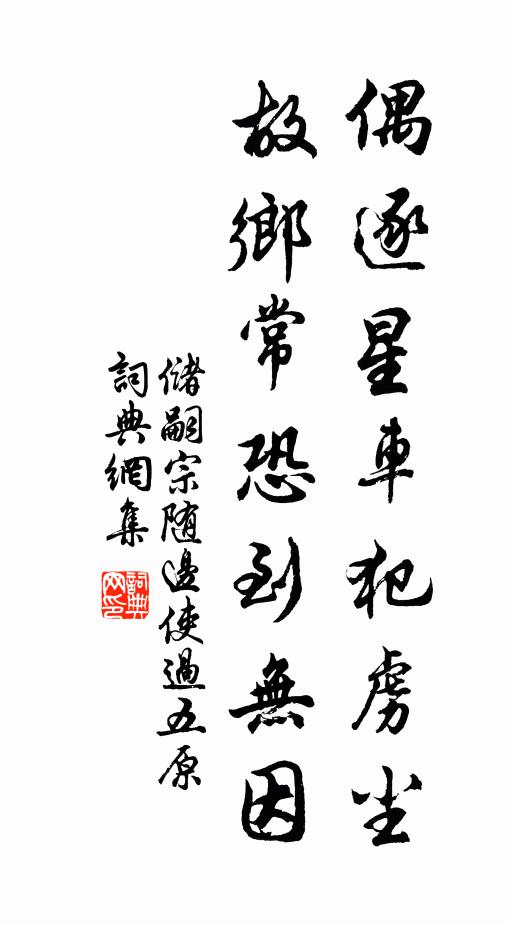 偶逐星車犯虜尘
故鄉常恐到無因
儲嗣宗随邊使過五原
詞典網集
詞典网印